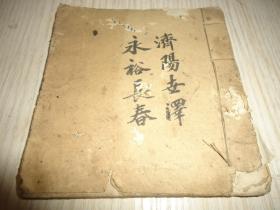 濟陽世澤
永裕長春